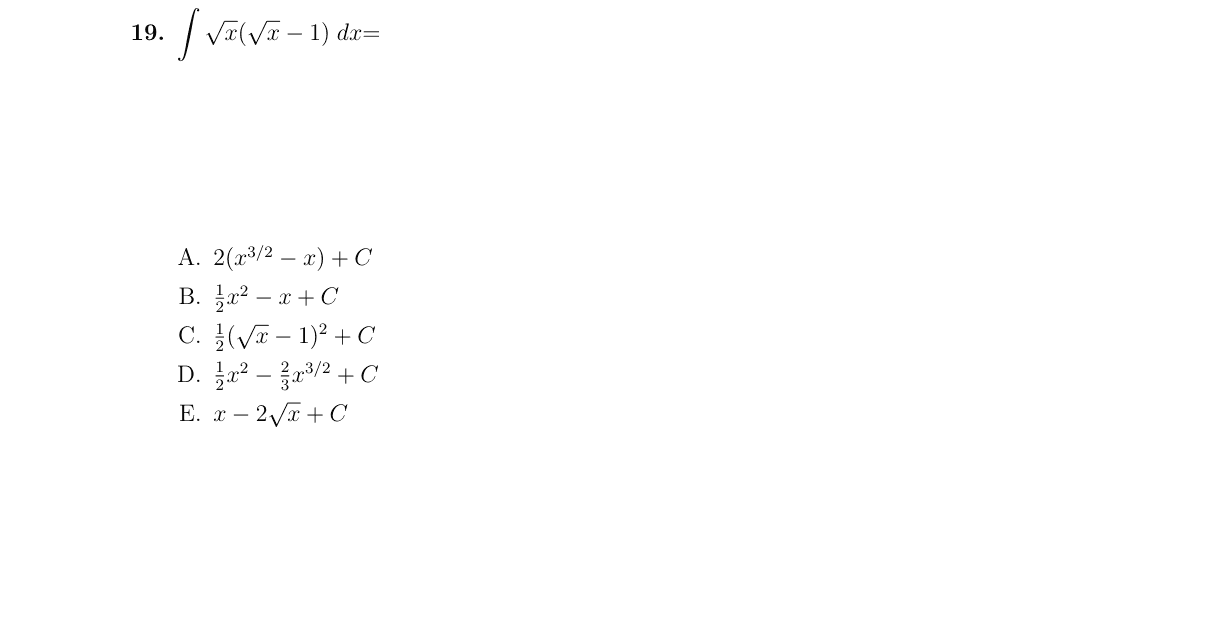 19. ∫ √x(√x − 1) dx=
A. 2(x^{3/2} − x) + C
B. \frac{1}{2}x^2 − x + C
C. \frac{1}{2}(√x − 1)^2 + C
D. \frac{1}{2}x^2 − \frac{2}{3}x^{3/2} + C
E. x − 2√x + C